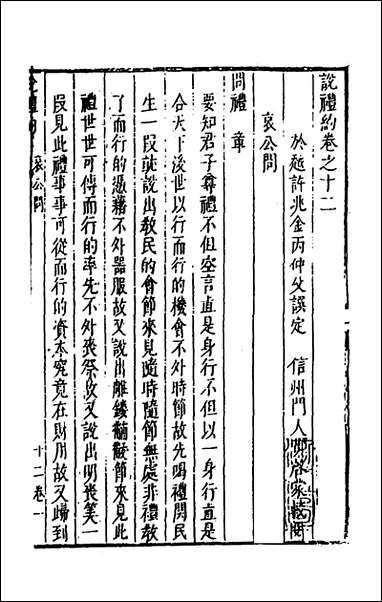 說禮約卷之十二
於越許兆金丙仲父譔定　信州門人
哀公問
問禮　章
要知君子尊禮不但空言直是身行不但以一身行直是
合天下後世以行而行的機會不外時節故先喝禮開民
生一段就說出教民的會節來見隨時隨節無處非禮教
了而行的憑藉不外器服故又說出雕鏤黼黻節來見此
禮世世可傳而行的率先不外喪祭故又說出明喪筭一
段見此禮事事可從而行的資本究竟在財用故又歸到
哀公問
十二卷　一